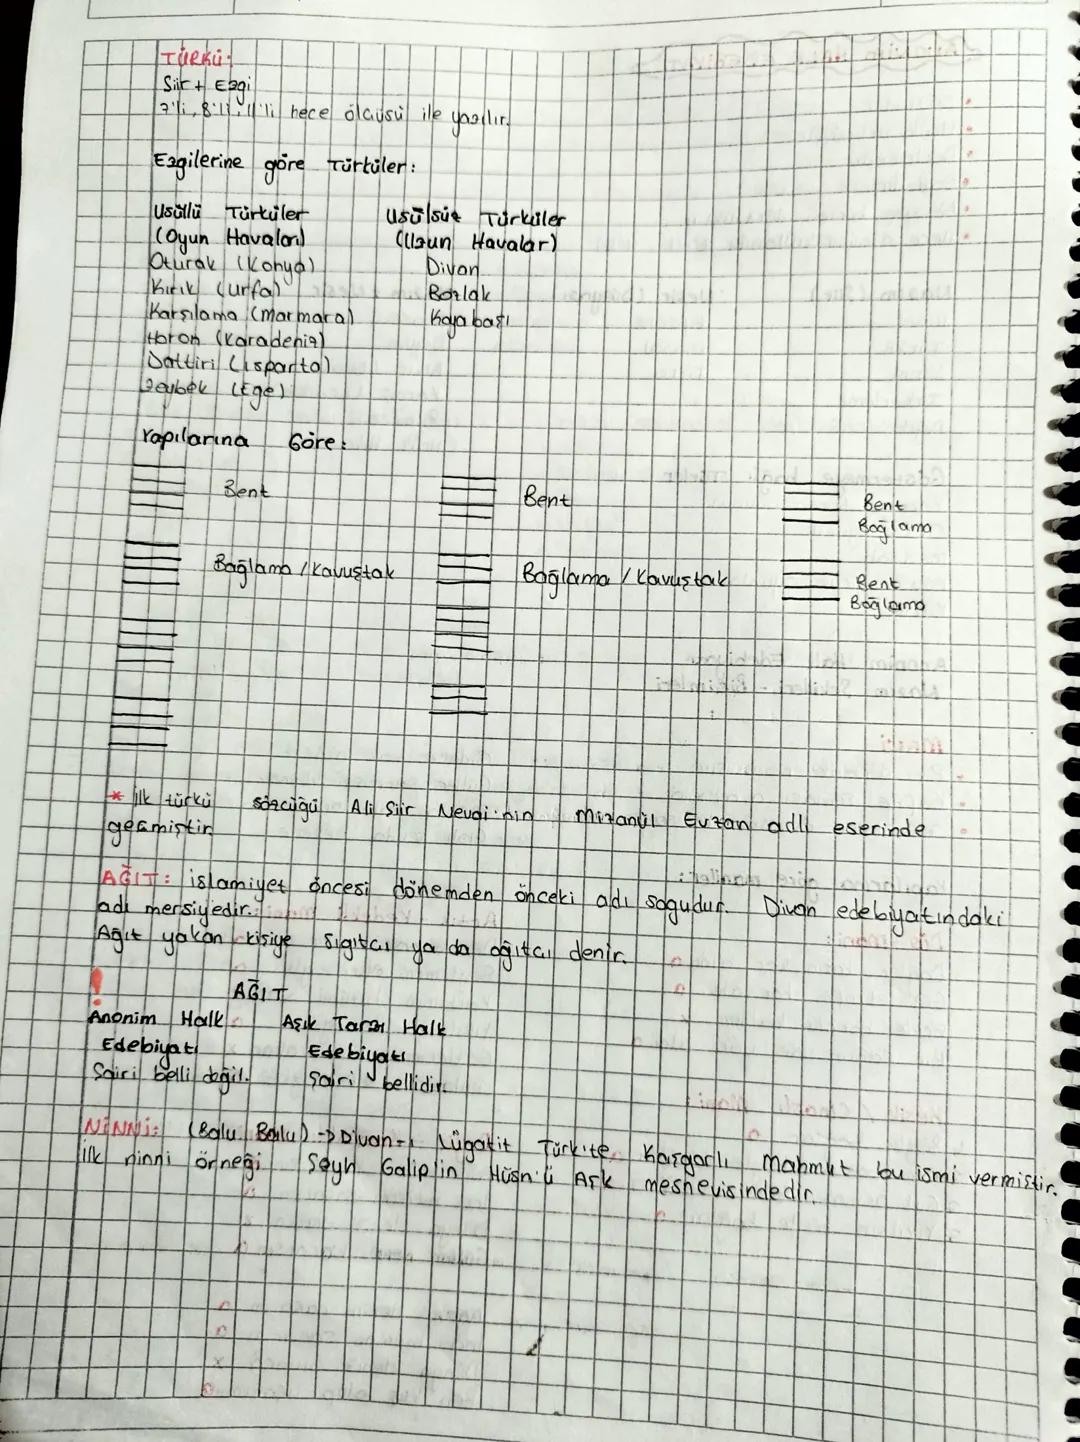 TÜRKÜ:
Şiir + Ezgi
7'li, 8'li, 11'li hece ölçüsü ile yazılır.
Ezgilerine göre Türküler:
Usüllü Türküler
(Oyun Havaları)
Oturak (Konya)
Kırık (Urfa)
Karşılama (Marmara)
Horon (Karadeniz)
Dattiri (Isparta)
Zeybek (Ege)
Usülsüz Türküler
(Uzun Havalar)
Divan
Bozlak
Kayabaşı
Yapılarına Göre:
Bent
Bağlama / Kavuştak
Bent
Bağlama / Kavuştak
Bent
Bağlama
Bent
Bağlama
* İlk türkü sözcüğü Ali Şiir Nevai'nin Mizanül Evzan adlı eserinde
geçmiştir
AĞIT: islamiyet öncesi dönemden önceki adı sagudur. Divan edebiyatındaki
adı mersiyedir.
Ağıt yakan kişiye sıgıtcı ya da ağıtcı denir.
!
AĞIT
Anonim Halk
Edebiyatı
Şairi belli değil.
Aşık Tarzı Halk
Edebiyatı
Şairi bellidir.
NİNNİ: (Balu Balu) -> Divan-ı Lügatit Türk'te Kaşgarlı Mahmut bu ismi vermiştir.
İlk ninni örneği Şeyh Galip'in Hüsn'ü Aşk mesnevisindedir.